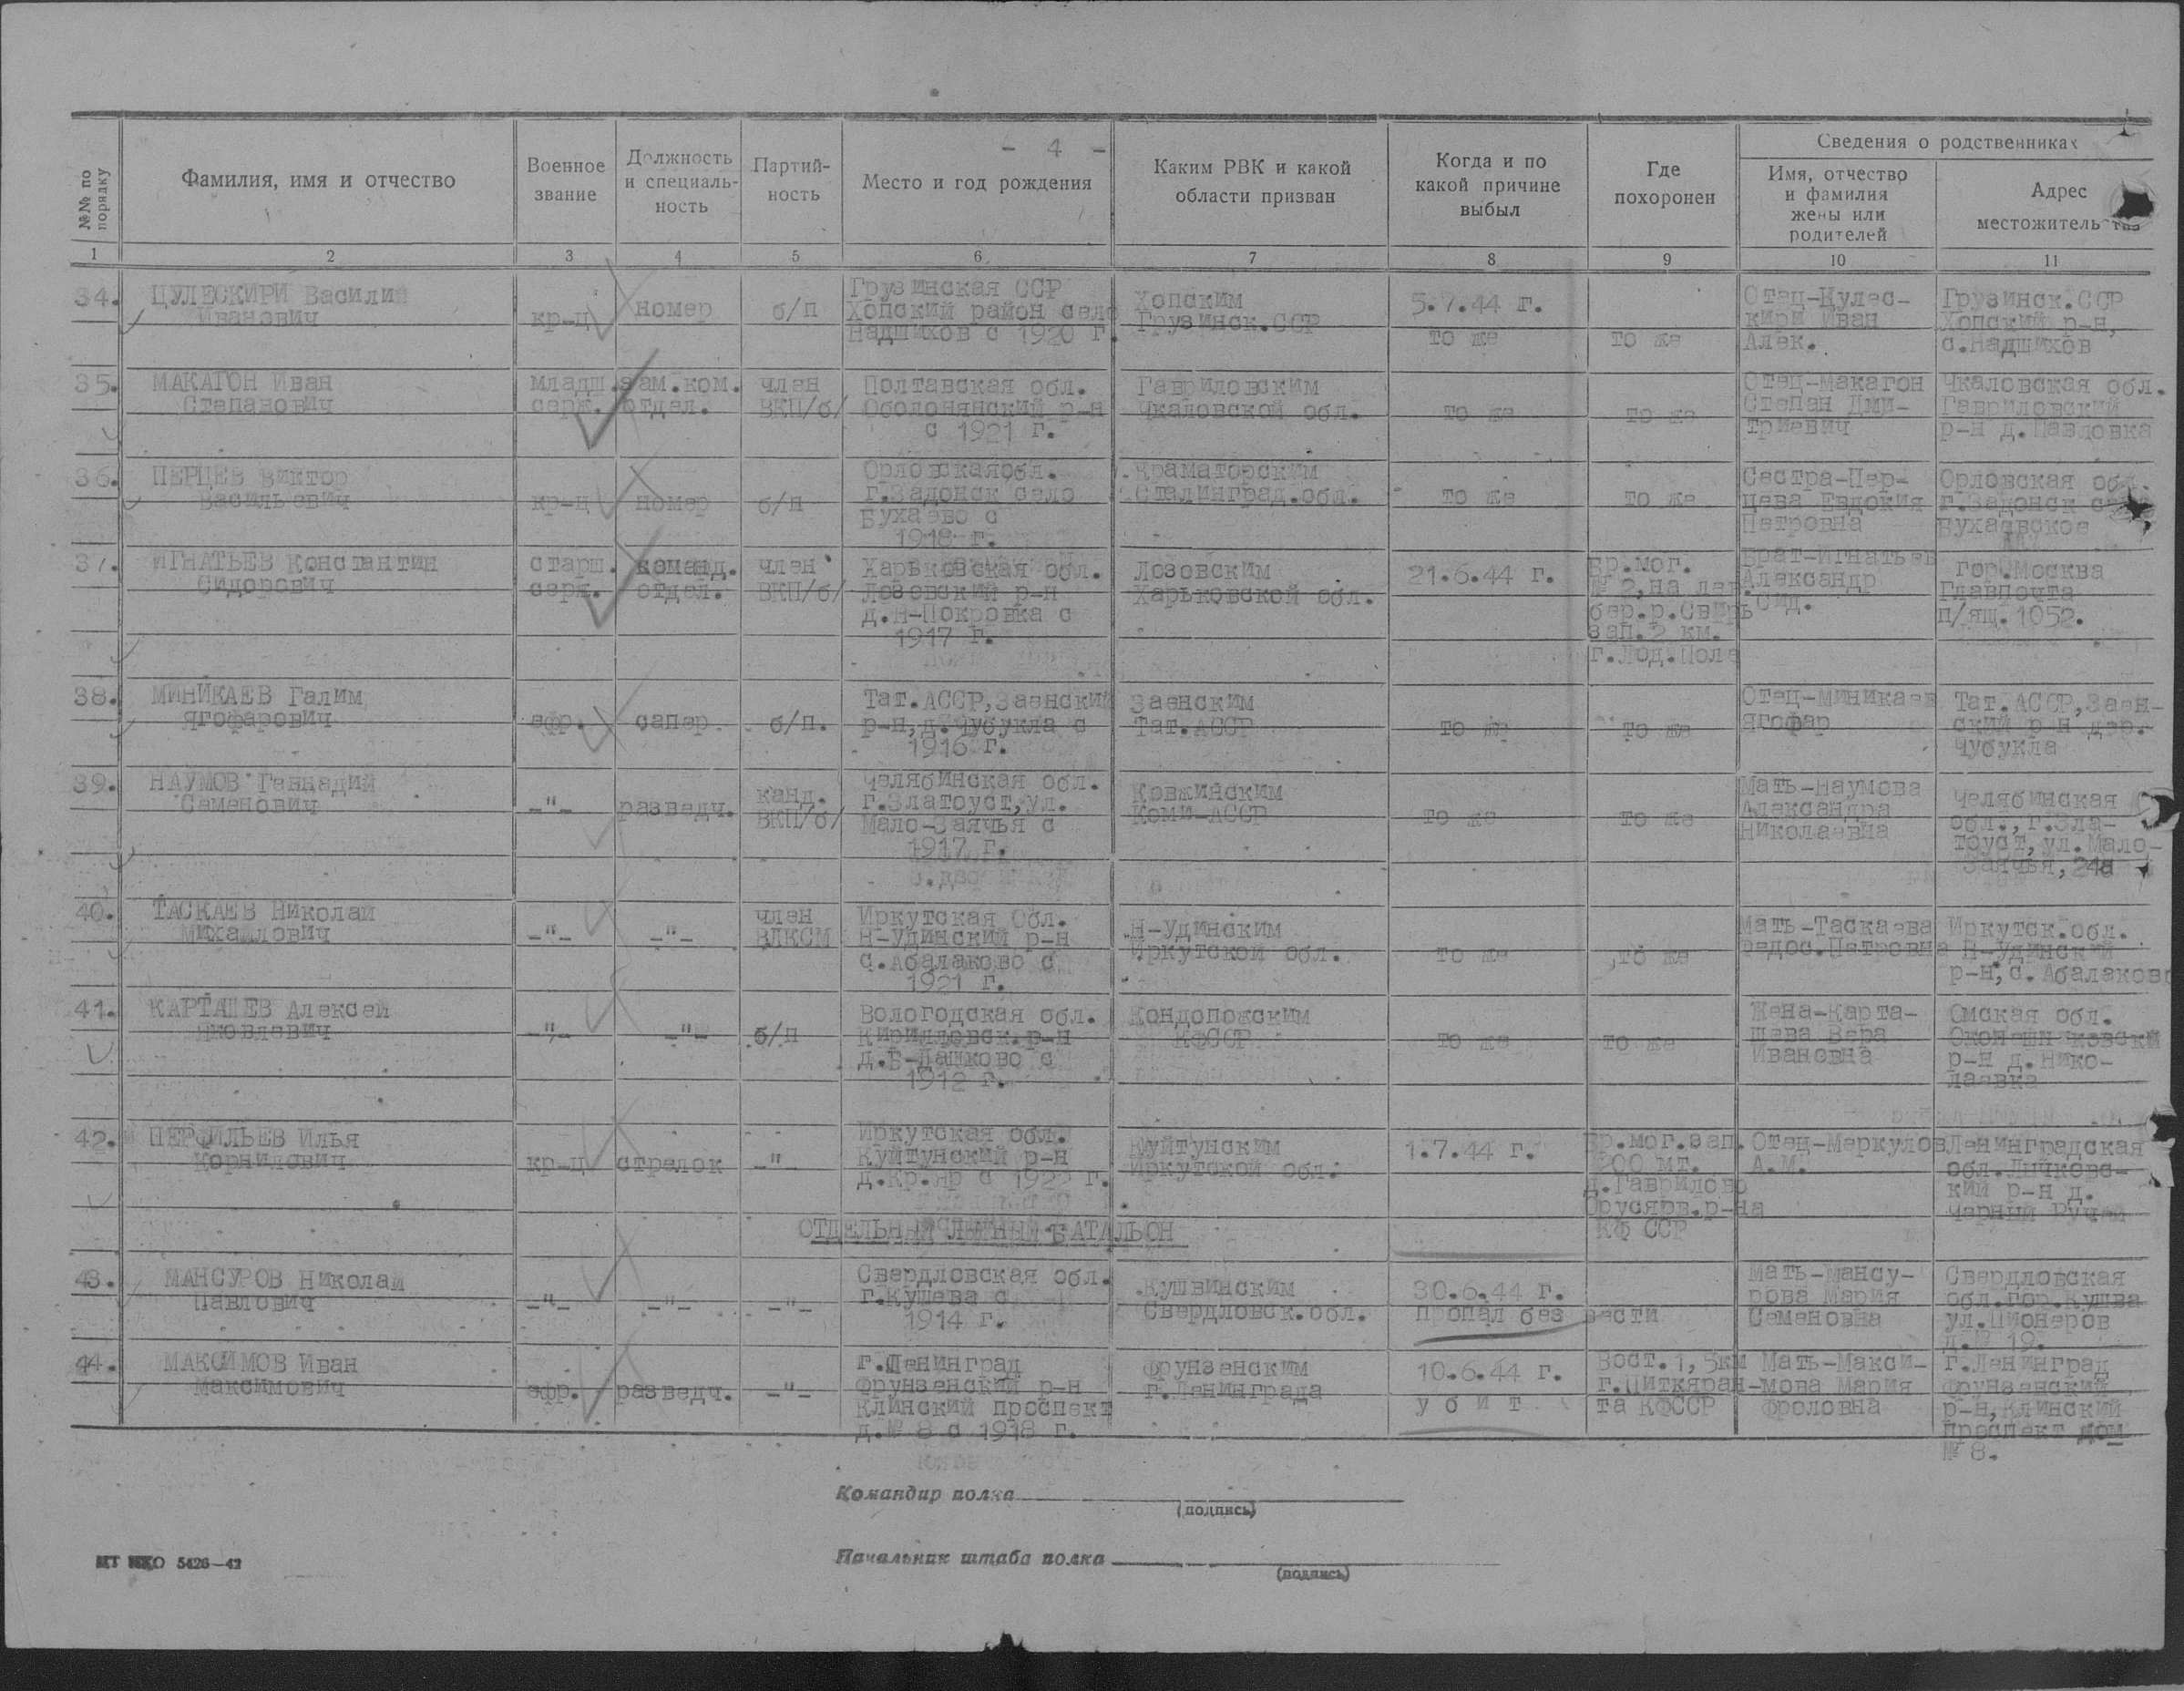 - 4 -
№№ по порядку
Фамилия, имя и отчество
Военное звание
Должность и специаль-ность
Партий-ность
Место и год рождения
Каким РВК и какой области призван
Когда и по какой причине выбыл
Где похоронен
Сведения о родственниках
Имя, отчество и фамилия жены или родителей
Адрес местожительства
1 2 3 4 5 6 7 8 9 10 11
34. ЦУЛЕСКИРИ Василий
Иванович
кр-ц номер б/п
Грузинская ССР
Хопский район село
Надшихов с 1920 г.
Хопским
Грузинск.ССР
5.7.44 г.
то же
то же
Отец-Цулес-
кири Иван
Алек.
Грузинск.ССР
Хопский р-н,
с.Надшихов
35. МАКАГОН Иван
Степанович
младш.
серж.
зам.ком.
отдел.
член
ВКП/б/
Полтавская обл.
Оболонянский р-н
с 1921 г.
Гавриловским
Чкаловской обл.
то же
то же
Отец-Макагон
Степан Дми-
триевич
Чкаловская обл.
Гавриловский
р-н д.Павловка
36. ПЕРЦЕВ Виктор
Васильевич
кр-ц номер б/п
Орловскаяобл.
г.Задонск село
Бухаево с
1918 г.
Краматорским
Сталинград.обл.
то же
то же
Сестра-Пер-
цева Евдокия
Петровна
Орловская обл.
г.Задонск
Бухаевское
37. ИГНАТЬЕВ Константин
Сидорович
старш.
серж.
команд.
отдел.
член
ВКП/б/
Харьковская обл.
Лозовский р-н
д.Н-Покровка с
1917 г.
Лозовским
Харьковской обл.
21.6.44 г.
Бр.мог.
№ 2,на лев.
бер.р.Свирь
зап.2 км.
г.Лод.Поле
Брат-Игнатьев
Александр
Сид.
гор.Москва
Главпочта
п/ящ.1052.
38. МИНИКАЕВ Галим
Ягофарович
ефр. сапер б/п.
Тат.АССР,Заенский
р-н,д.Чубукла с
1916 г.
Заенским
Тат.АССР
то же
то же
Отец-Миникаев
Ягофар
Тат.АССР,Заен-
ский р-н дер.
Чубукла
39. НАУМОВ Геннадий
Семенович
-"- разведч.
канд.
ВКП/б/
Челябинская обл.
г.Златоуст,ул.
Мало-Заячья с
1917 г.
Ковжинским
Коми-АССР
то же
то же
Мать-Наумова
Александра
Николаевна
Челябинская
обл.,г.Зла-
тоуст,ул.Мало-
Заячья,24а
40. ТАСКАЕВ Николай
Михайлович
-"- -"-
член
ВЛКСМ
Иркутская Обл.
Н-Удинский р-н
с.Абалаково с
1921 г.
Н-Удинским
Иркутской обл.
то же
то же
Мать-Таскаева
Федос.Петровна
Иркутск.обл.
Н-Удинский
р-н,с.Абалаково
41. КАРТАШЕВ Алексей
Яковлевич
-"- -"- б/п
Вологодская обл.
Кирилловск.р-н
д.Б-Дашково с
1912 г.
Кондопожским
КФССР
то же
то же
Жена-Карта-
шева Вера
Ивановна
Омская обл.
р-н д.Нико-
лаевка
42. ПЕРФИЛЬЕВ Илья
Корнилович
кр-ц стрелок -"-
Иркутская обл.
Куйтунский р-н
д.Кр.Яр с 1922 г.
Куйтунским
Иркутской обл.
1.7.44 г.
Бр.мог.зап.
200 мт.
д.Гаврилово
Орусярв.р-на
КФ ССР
Отец-Меркулов
А.М.
Ленинградская
обл.Лычковс-
кий р-н д.
Черный Ручей
ОТДЕЛЬНЫЙ ЛЫЖНЫЙ БАТАЛЬОН
43. МАНСУРОВ Николай
Павлович
-"- -"- -"-
Свердловская обл.
г.Кушева с
1914 г.
Кушвинским
Свердловск.обл.
30.6.44 г.
пропал без вести
Мать-Мансу-
рова Мария
Семеновна
Свердловская
обл.гор.Кушва
ул.Пионеров
д.№ 19.
44. МАКСИМОВ Иван
Максимович
ефр. разведч. -"-
г.Ленинград
Фрунзенский р-н
Клинский проспект
д.№ 8 с 1918 г.
Фрунзенским
г.Ленинграда
10.6.44 г.
у б и т
Вост.1,5км
г.Питкяран-
та КФССР
Мать-Макси-
мова Мария
Фроловна
г.Ленинград
Фрунзенский
р-н,Клинский
проспект дом
№ 8.
Командир полка
(подпись)
Начальник штаба полка
(подпись)
МТ НКО 5426—42